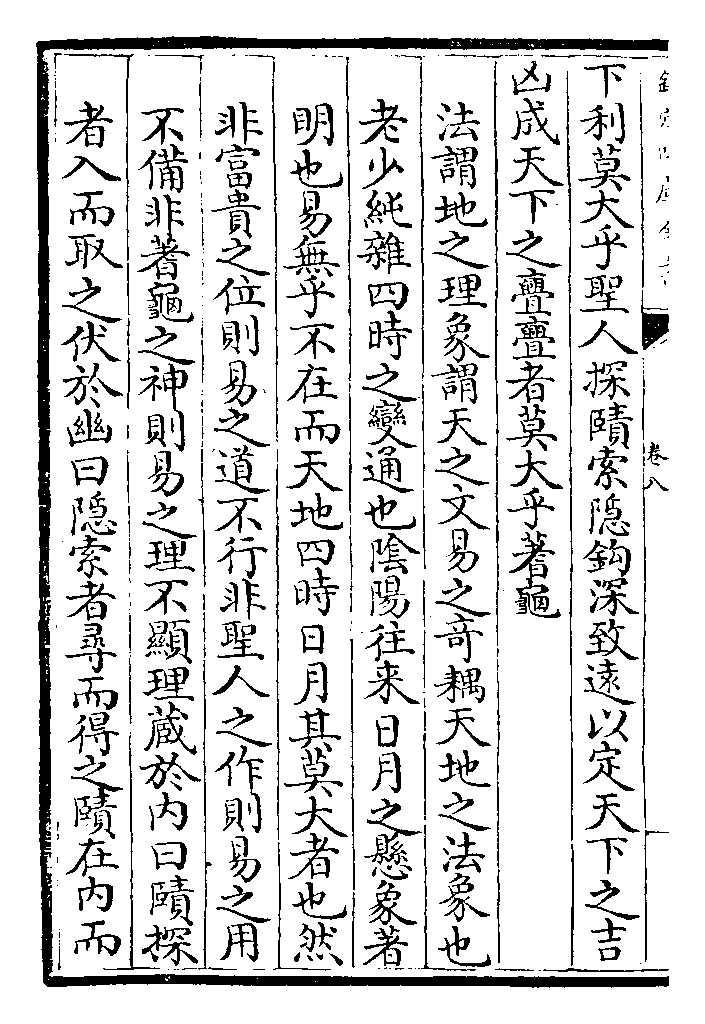 欽定四庫全書
卷八
下利莫大乎聖人探賾索隠鈎深致遠以定天下之吉
凶成天下之亹亹者莫大乎蓍龜
法謂地之理象謂天之文易之竒耦天地之法象也
老少純雜四時之變通也陰陽往来日月之懸象著
明也易無乎不在而天地四時日月其莫大者也然
非富貴之位則易之道不行非聖人之作則易之用
不備非蓍龜之神則易之理不顯理蔵於内曰賾探
者入而取之伏於幽曰隠索者尋而得之賾在内而